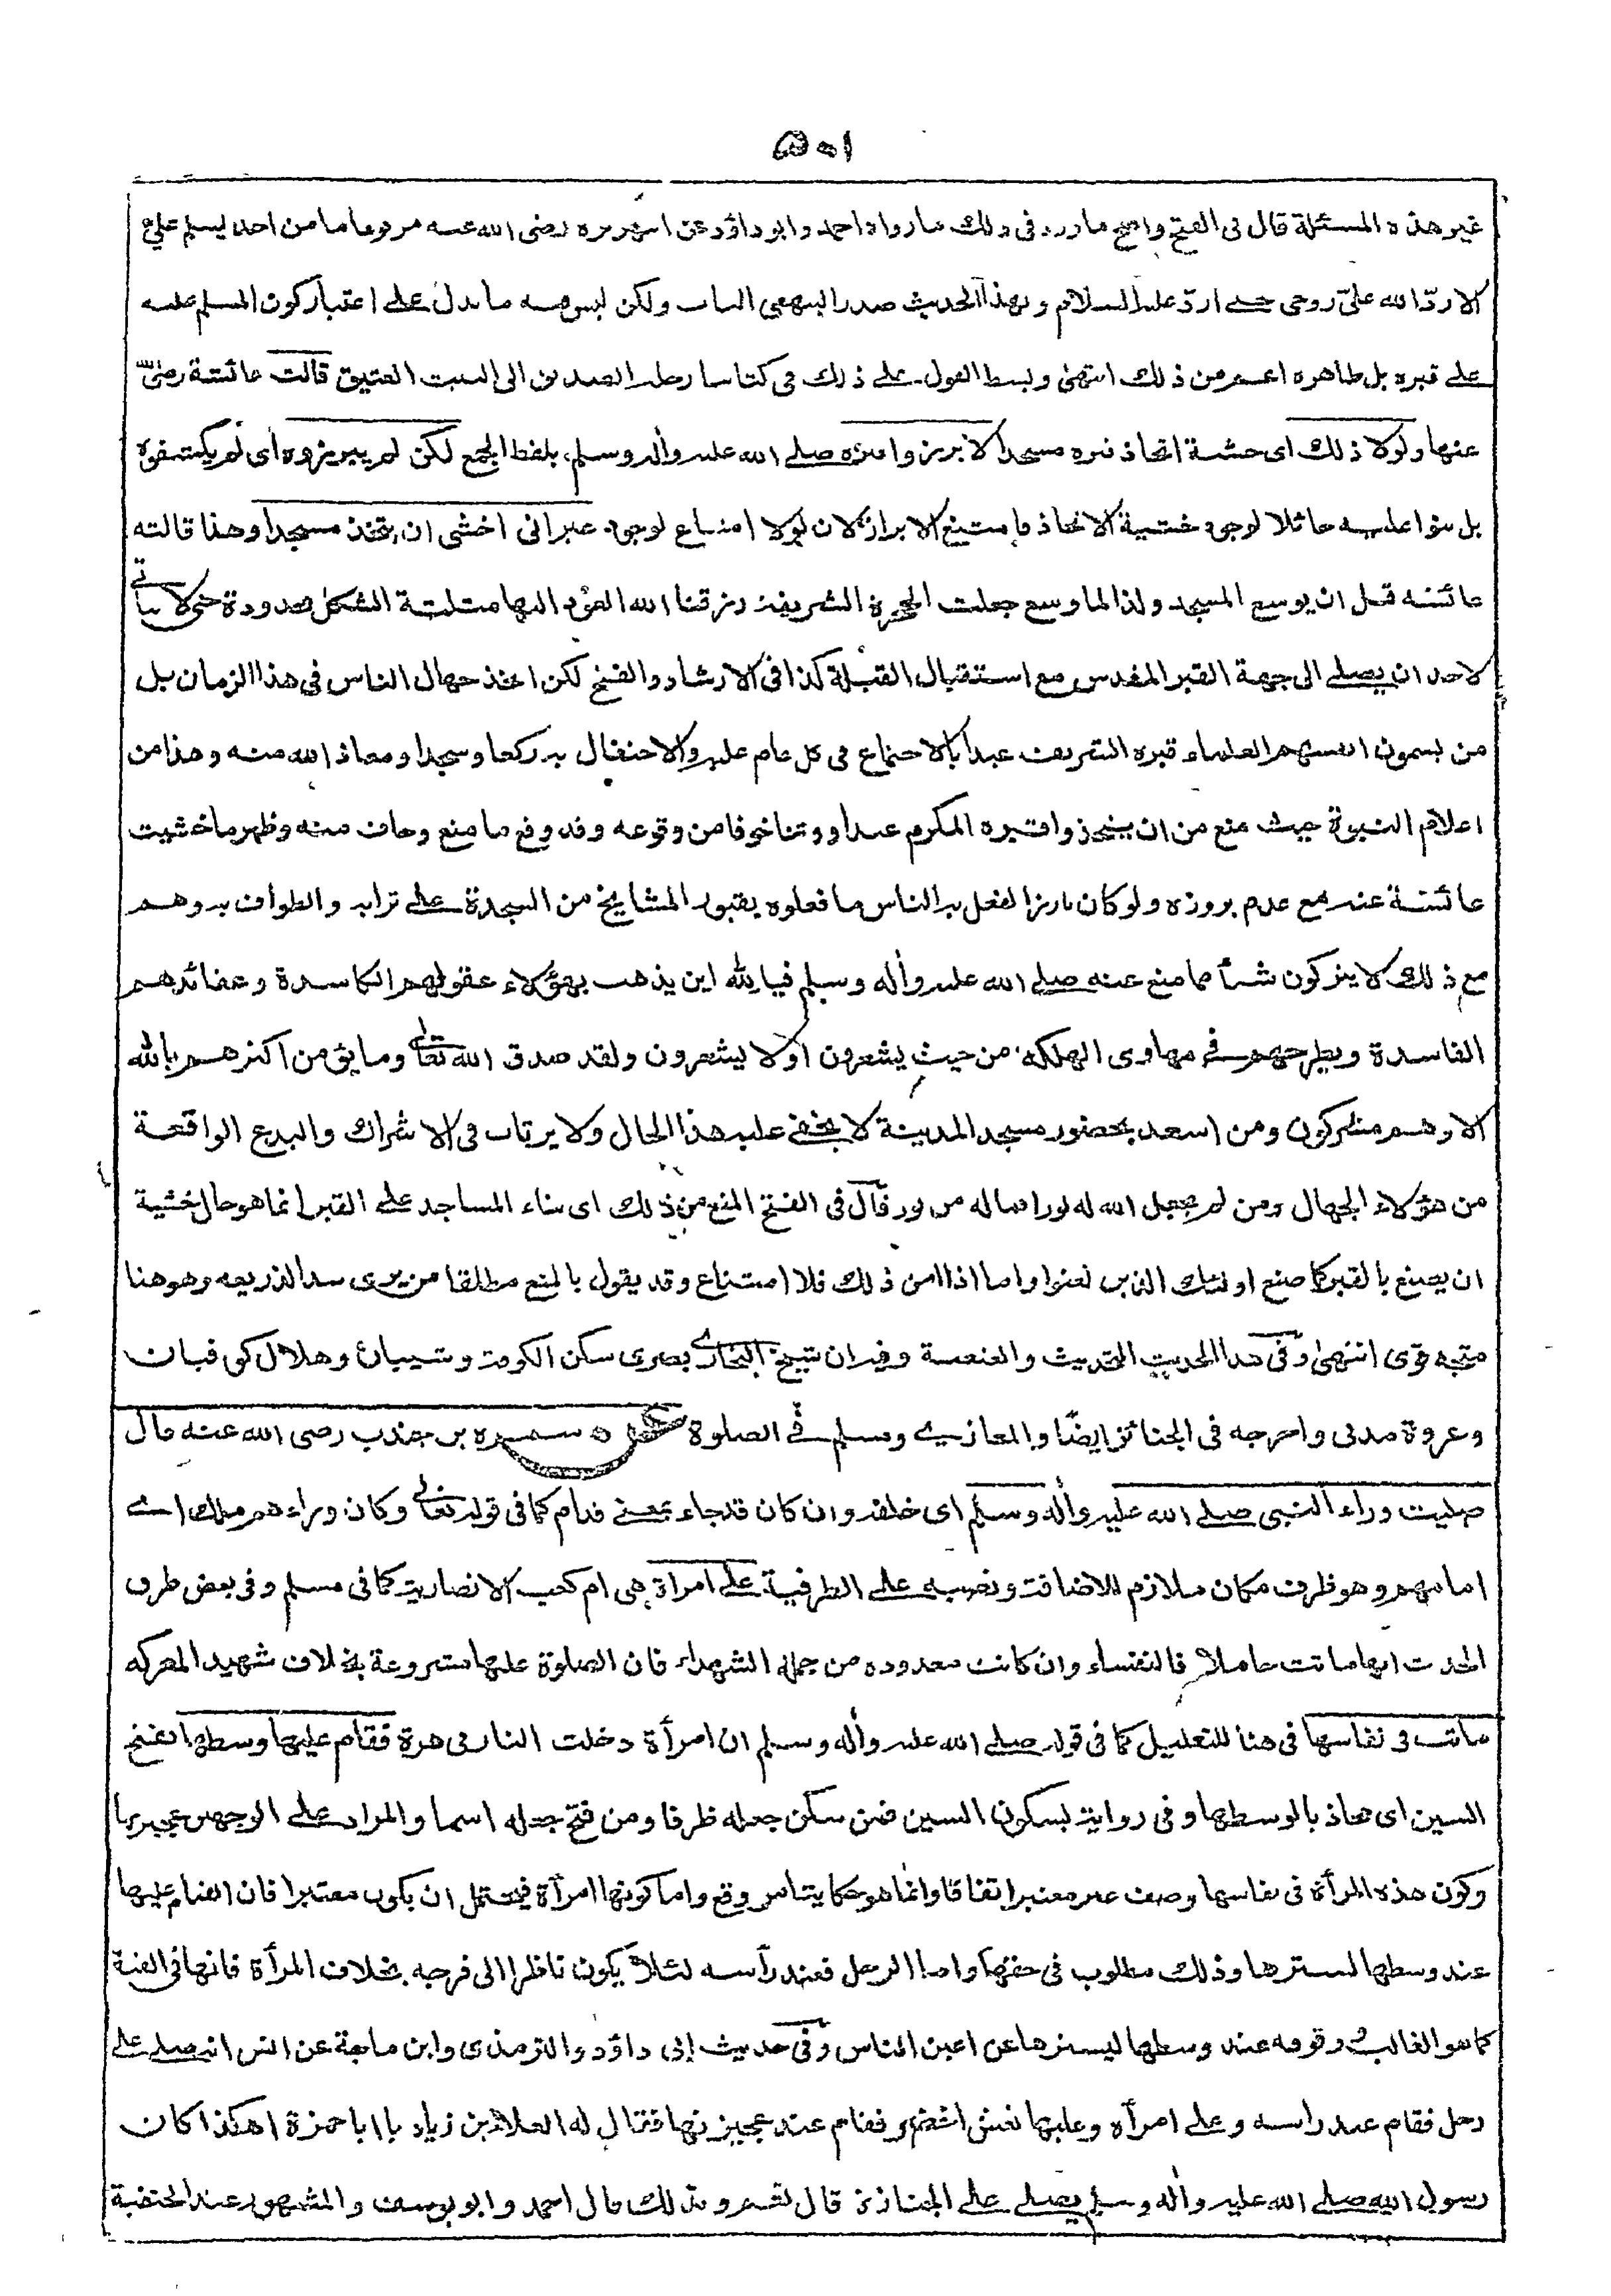 ٥٠١
غير هذه المسئلة قال فى الفتح واصح ما ورد فى ذلك ما رواه احمد وابو داؤد عن ابى هريرة رضى الله عنه مرفوعا ما من احد يسلم علىّ
الا ردّ الله علىّ روحى حتے اردّ عليه السلام وبهذا الحديث صدر البيهقى الباب ولكن ليس فيه ما يدل علے اعتبار كون المسلم عليه
علے قبره بل ظاهره اعم من ذلك انتهى وبسط القول علے ذلك فى كتابنا رحلة الصديق الى البيت العتيق قالت عائشة رضى الله
عنها ولولا ذلك اى خشية اتخاذ قبره مسجدا لابرزوا قبره صلے الله عليه وأله وسلم بلفظ الجمع لكن لم يبرزوه اى لم يكشفوه
بل بنوا عليه حائلا لوجود خشية الاتخاذ فامتنع الابراز لان لولا امتناع لوجود غير انى اخشى ان يتخذ مسجدا وهذا قالته
عائشة قبل ان يوسع المسجد ولذا لما وسع جعلت الحجرة الشريفة رزقنا الله العود اليها مثلثة الشكل محدودة حتى لا يتأتے
لاحد ان يصلے الى جهة القبر المقدس مع استقبال القبلة كذا فى الارشاد والفتح لكن اتخذ جهال الناس فى هذا الزمان بل
من يسمون انفسهم العلماء قبره الشريف عيدا بالاجتماع فى كل عام عليه والاحتفال به ركعا وسجدا ومعاذ الله منه وهذا من
اعلام النبوة حيث منع من ان يتخذوا قبره المكرم عيدا ووثنا خوفا من وقوعه وقد وقع ما منع وخاف منه وظهر ما خشيت
عائشة عنه مع عدم بروزه ولو كان بارزا لفعل به الناس ما فعلوه بقبور المشايخ من السجدة علے ترابه والطواف به وهم
مع ذلك لا يتركون شيأ مما منع عنه صلے الله عليه وأله وسلم فيا لله اين يذهب بهؤلاء عقولهم الكاسدة وعقائدهم
الفاسدة ويطرحهم فے مهاوى الهلكة من حيث يشعرون او لا يشعرون ولقد صدق الله تعالے وما يؤمن اكثرهم بالله
الا وهم مشركون ومن اسعد بحضور مسجد المدينة لا يخفے عليه هذا الحال ولا يرتاب فى الاشراك والبدع الواقعة
من هؤلاء الجهال ومن لم يجعل الله له نورا فما له من نور قال فى الفتح المنع من ذلك اى بناء المساجد علے القبر انما هو حال خشية
ان يصنع بالقبر كما صنع اولئك الذين لعنوا واما اذا امن ذلك فلا امتناع وقد يقول بالمنع مطلقا من يرى سد الذريعة وهو هنا
متجه قوى انتهى وفى هذا الحديث التحديث والعنعنة وفيه ان شيخ البخارے بصرى سكن الكوفة وشيبان وهلال كوفيان
وعروة مدنى واخرجه فى الجنائز ايضًا والمغازے ومسلم فے الصلوة عن سمرة بن جندب رضى الله عنه قال
صليت وراء النبى صلے الله عليه وأله وسلم اى خلفه وان كان قد جاء بمعنے قدام كما فى قوله تعالے وكان وراءهم ملك اے
امامهم وهو ظرف مكان ملازم للاضافة ونصبه علے الظرفية علے امرأة هى ام كعب الانصارية كما فى مسلم وفى بعض طرق
الحديث انها ماتت حاملا فالنفساء وان كانت معدودة من جملة الشهداء فان الصلوة عليها مشروعة بخلاف شهيد المعركة
ماتت فى نفاسها فى هنا للتعليل كما فى قوله صلے الله عليه وأله وسلم ان امرأة دخلت النار فى هرة فقام عليها وسطها بفتح
السين اى محاذ بالوسطها وفى رواية بسكون السين فمن سكن جعله ظرفا ومن فتح جعله اسما والمراد علے الوجهين عجيزتها
وكون هذه المرأة فى نفاسها وصف غير معتبر اتفاقا وانما هو حكاية امر وقع واما كونها امرأة فيحتمل ان يكون معتبرا فان القيام عليها
عند وسطها لسترها وذلك مطلوب فى حقها واما الرجل فعند رأسه لئلا يكون ناظرا الى فرجه بخلاف المرأة فانها فى القبة
كما هو الغالب ووقوفه عند وسطها ليسترها عن اعين الناس وفى حديث ابى داؤد والترمذى وابن ماجة عن انس انه صلے علے
رجل فقام عند راسه وعلے امرأة وعليها نعش اخضر فقام عند عجيزتها فقال له العلاء بن زياد يا ابا حمزة اهكذا كان
رسول الله صلے الله عليه وأله وسلم يصلے علے الجنازة قال نعم وبذلك قال احمد وابو يوسف والمشهور عند الحنفية